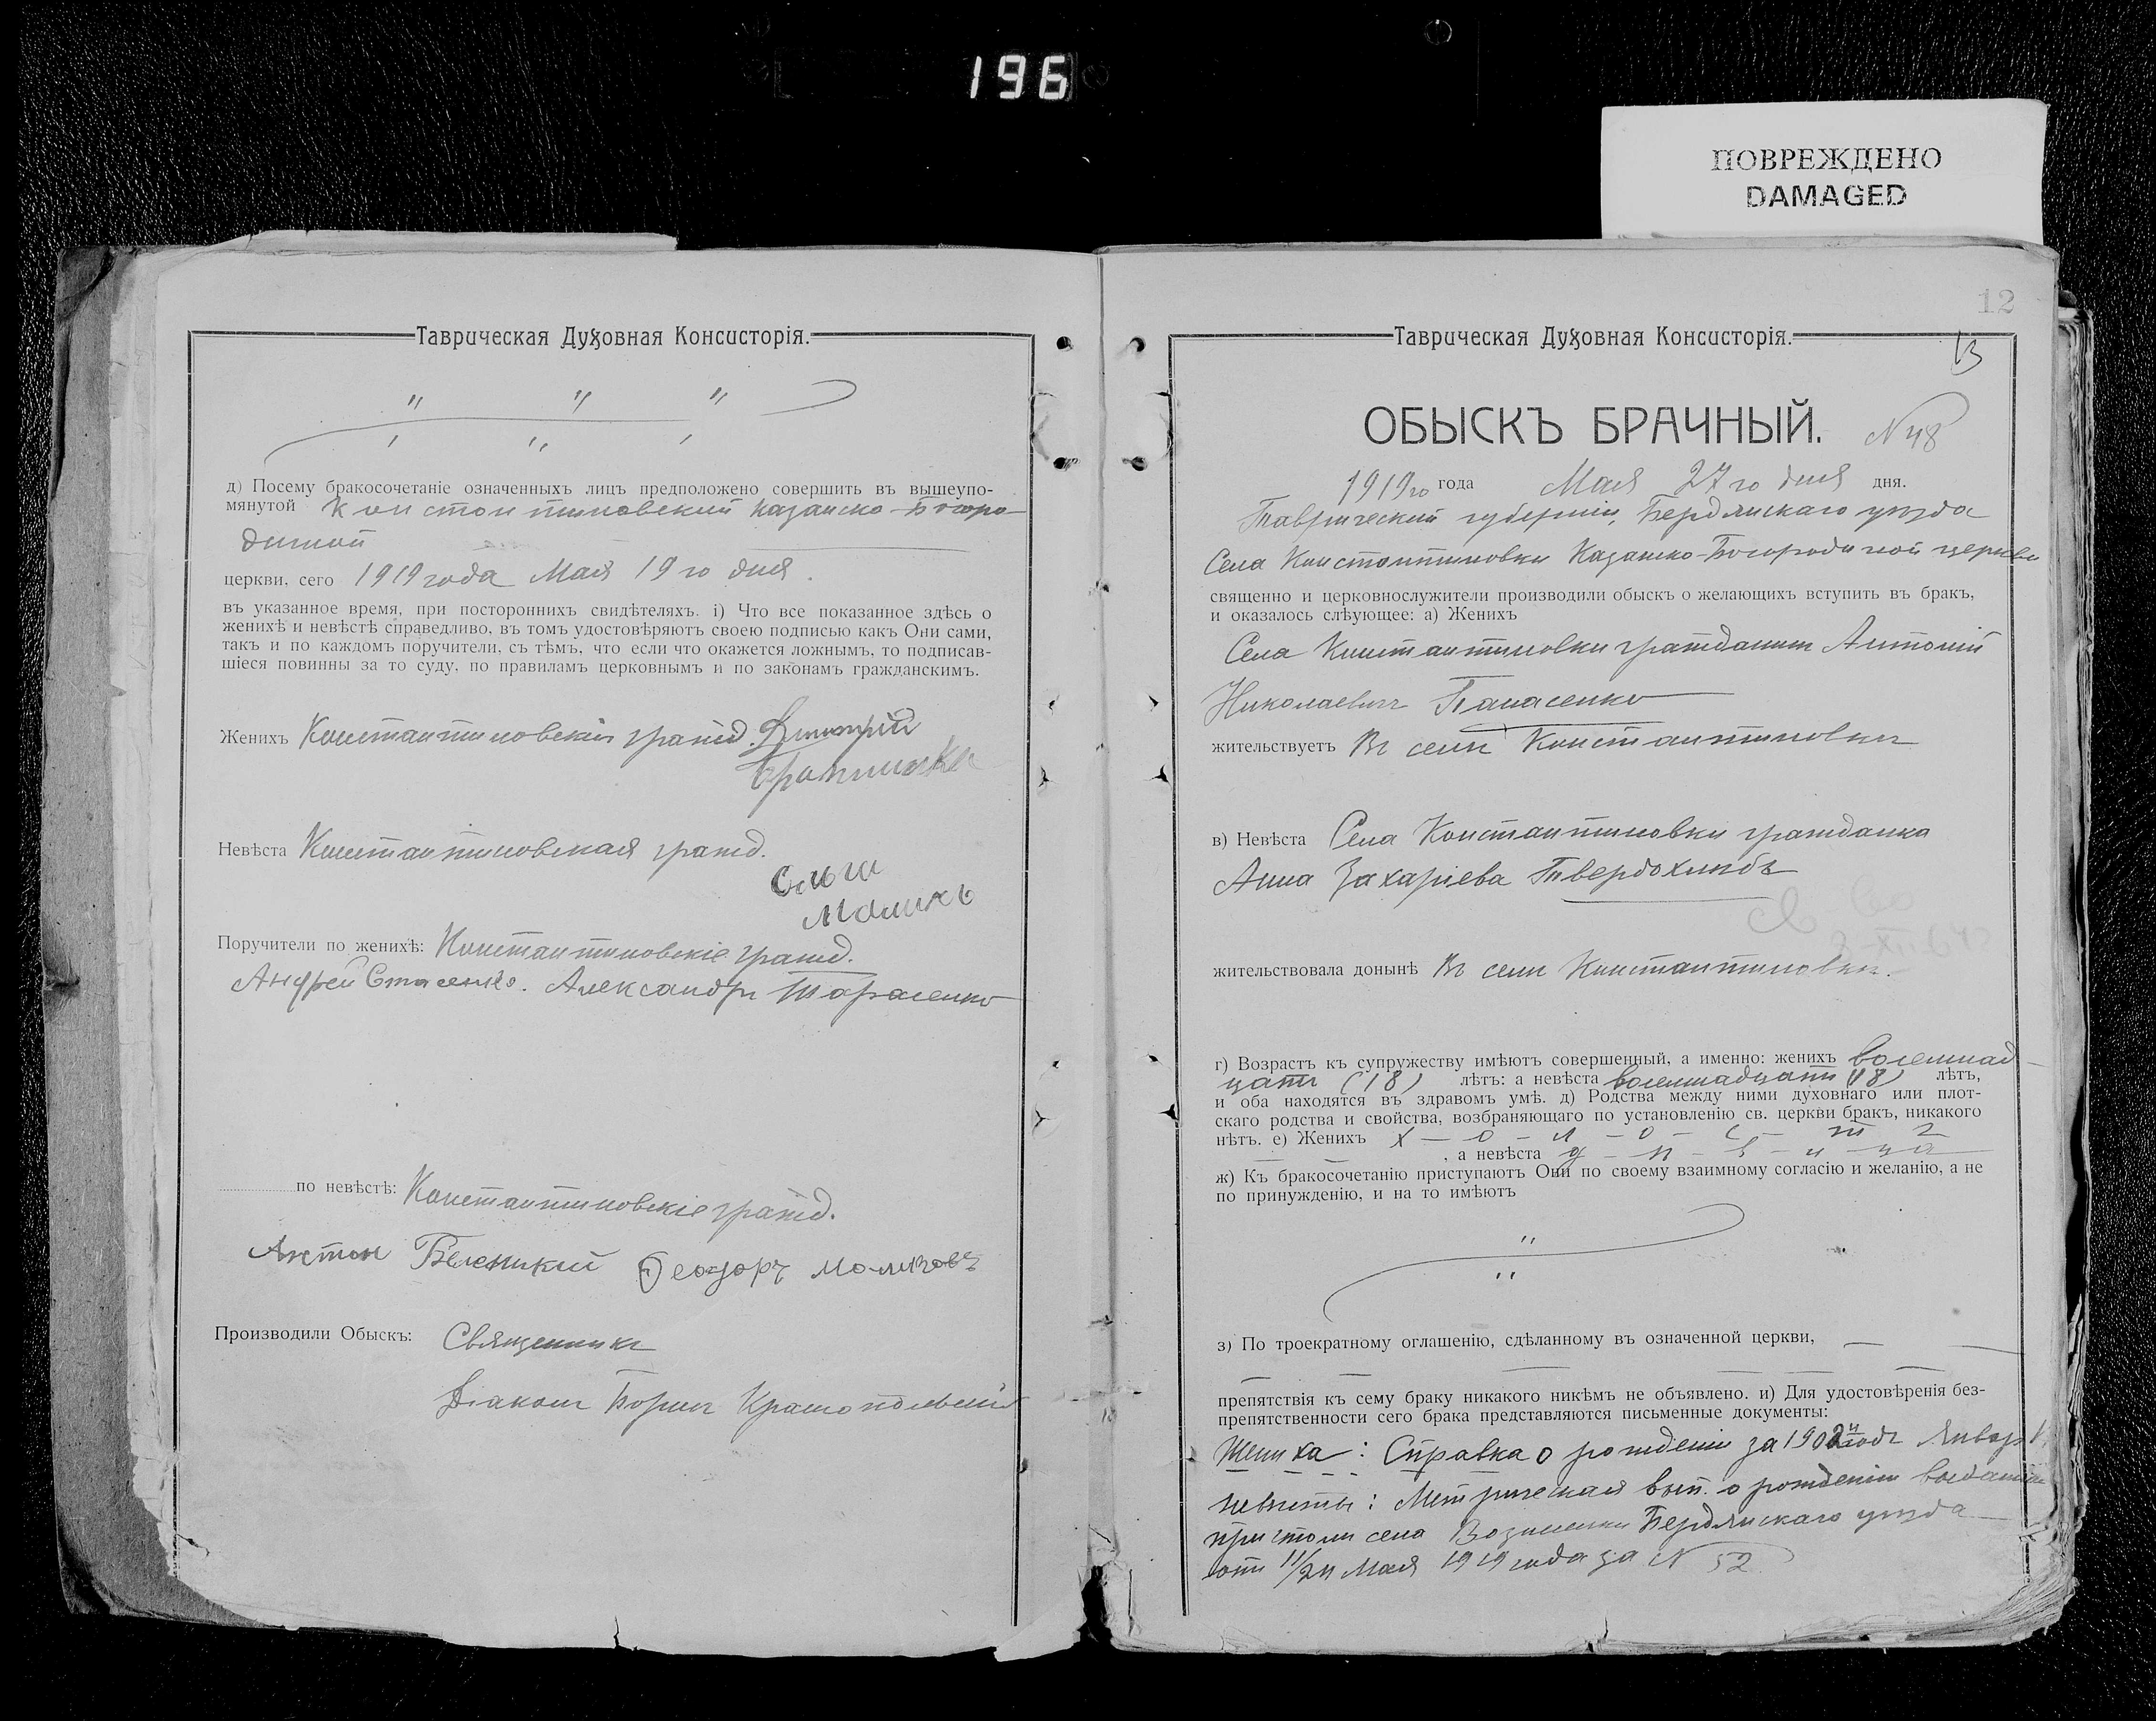 196
ПОВРЕЖДЕНО
DAMAGED
Таврическая Духовная Консисторія.
д) Посему бракосочетаніе означенныхъ лицъ предположено совершить въ вышеупо-
мянутой Константиновской Казанско-Богоро-
дичной
церкви, сего 1919 года Мая 19 го дня.
въ указанное время, при постороннихъ свидѣтеляхъ. i) Что все показанное здѣсь о
женихѣ и невѣстѣ справедливо, въ томъ удостовѣряютъ своею подписью какъ Они сами,
такъ и по каждомъ поручители, съ тѣмъ, что если что окажется ложнымъ, то подписав-
шіеся повинны за то суду, по правиламъ церковнымъ и по законамъ гражданскимъ.
Женихъ Константиновскій гражд. Димитрій
Невѣста Константиновская гражд.
Поручители по женихѣ: Константиновскіе гражд.
Андрей Стасенко. Александръ Тарасенко
по невѣстѣ: Константиновскіе гражд.
Антон Беленький Феодоръ
Производили Обыскъ: Священникъ
Діаконъ Борисъ
12
Таврическая Духовная Консисторія.
13
ОБЫСКЪ БРАЧНЫЙ. N 48
1919 го года Мая 27 го дня дня.
Таврической губерніи, Бердянскаго уѣзда
Села Константиновки Казанско-Богородичной церкви
священно и церковнослужители производили обыскъ о желающихъ вступить въ бракъ,
и оказалось слѣующее: а) Женихъ
Села Константиновки гражданинъ Антоній
Николаевичъ Панасенко
жительствуетъ Въ селѣ Константиновкѣ
в) Невѣста Села Константиновки гражданка
Анна Захаріева Твердохлѣбъ
жительствовала донынѣ Въ селѣ Константиновкѣ.
г) Возрастъ къ супружеству имѣютъ совершенный, а именно: женихъ восемнад-
цати (18) лѣтъ: а невѣста восемнадцати (18) лѣтъ,
и оба находятся въ здравомъ умѣ. д) Родства между ними духовнаго или плот-
скаго родства и свойства, возбраняющаго по установленію св. церкви бракъ, никакого
нѣтъ. е) Женихъ х — о — л — о — с — т ъ
, а невѣста д — ѣ — в — и — ца
ж) Къ бракосочетанію приступаютъ Они по своему взаимному согласію и желанію, а не
по принужденію, и на то имѣютъ
з) По троекратному оглашенію, сдѣланному въ означенной церкви,
препятствія къ сему браку никакого никѣмъ не объявлено. и) Для удостовѣренія без-
препятственности сего брака представляются письменные документы:
Жениха: Справка о рожденіи за годъ
невѣсты: Метрическая вып. о рожденіи выданная
причтомъ села Вознесенки Бердянскаго уѣзда
отъ 11/24 Мая 1919 года за N 52